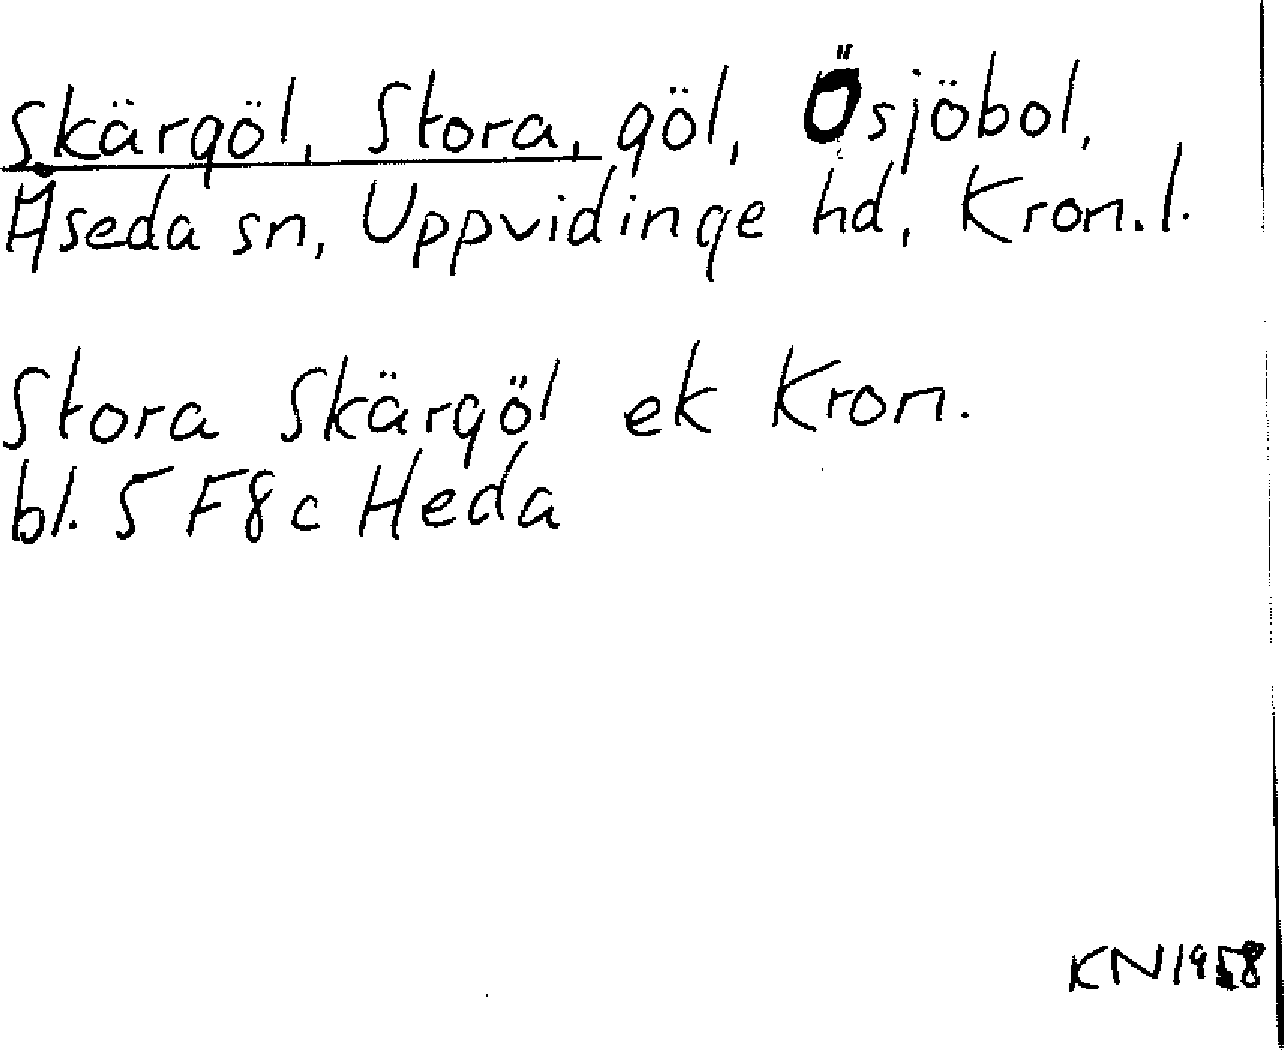 Skärgöl, Stora, göl, Ösjöbol,
Åseda sn, Uppvidinge hd, Kron.l.
Stora Skärgöl ek Kron.
bl. 5 F8c Heda
KN 1958